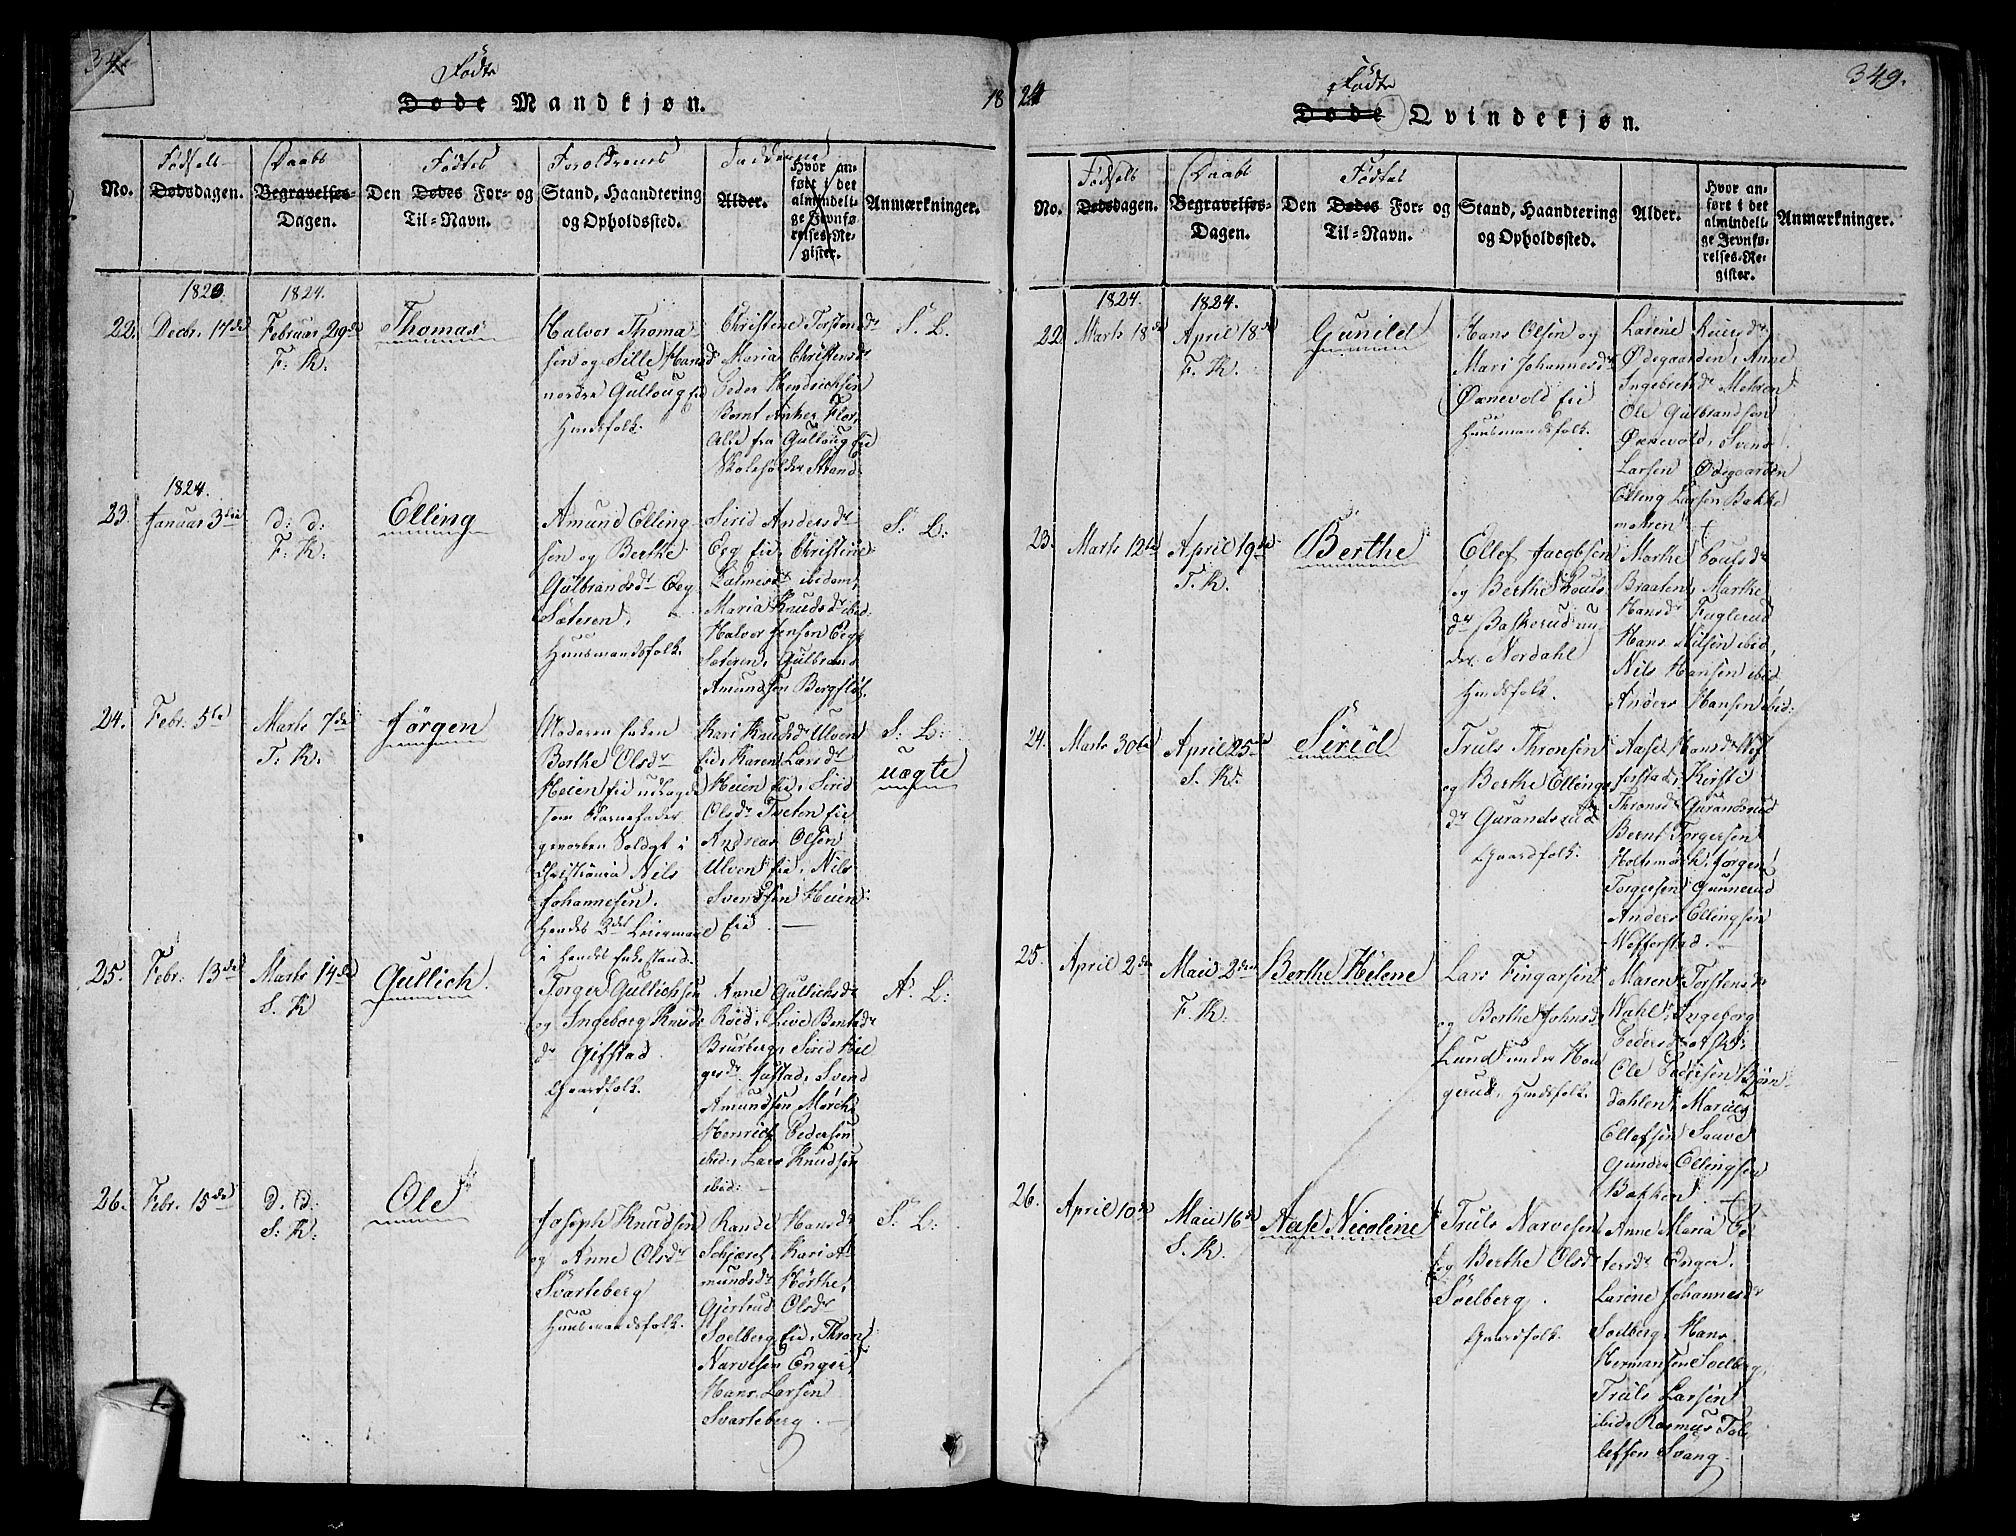 34
Födte
Døde Mandkjøn.
18
No.
Födsels
Dødsdagen.
Daabs
Begravelses-
Dagen.
Födtes
Den Dødes For- og
Til-Navn.
Forældrenes
Stand, Haandtering
og Opholdssted.
Faddere
Alder.
Hvor an-
ført i det
almindeli-
ge Jevnfø-
relses-Re-
gister.
Anmærkninger.
1823.
1824.
22.
Decbr. 17de
Februar 29de
F. K.
Thomas
Halvor Thoma
sen og Sille Hansd
nordre Gulloug eie
Huusfolk.
Christine Torstensdr
Maria Christensdr
Peder Hendrichsen
Bernt Anker Flor,
Alle fra Gulloug eie
Skoleholder Strand
S. L.
1824.
23
Januar 3die
d: d:
F: K:
Elling
Amund Elling
sen og Berthe
Gulbrandsdr Eeg
Sæteren,
Huusmandsfolk.
Sirid Andersdr
Eeg eie, Christine
ibidem,
Maria Knudsdr ibid.
Halvor Jensen Eeg
Sæteren, Gulbrand
Amundsen Bergfløt.
S: L:
24.
Febr. 5te
Marts 7de
T. K.
Jörgen
Moderen Enken
Berthe Olsdr
Heien eie udlagde
som Barnefader
gevorben Soldat i
Christiania Nils
Johannesen.
Hendes 3die Leiermaal
i hendes Enkestand.
Kari Knudsdr Ulven
eie, Karen Larsdr
Heien eie, Sirid
Olsdr Tveten eie
Andreas Olsen
Ulven eie, Nils
Svendsen Heien
eie
S: L:
uægte
25.
Febr. 13de
Marts 14de
S. K
Gullich
Torger Gullichsen
og Ingeborg Knuds
dr Gifstad
Gaardfolk.
Anne Gullichsdr
Röed, Live Bentsdr
Brurberg, Sirid Hel
gesdr Fustad, Svend
Amundsen Mørch
Henrich Pedersen
ibid:, Lars Knudsen
ibid:
A. L:
26.
Febr. 15de
d. d:
S: K:
Ole
Joseph Knudsen
og Anne Olsdr
Svarteberg
Huusmandsfolk.
Rande Hansdr
Schjæret, Kari A
mundsdr Hörthe,
Gjertrud Olsdr
Soelberg eie, Thron
Narvesen Enger,
Hans Larsen
Svarteberg.
S. L:
24
349.
Födte
Døde Qvindekjøn.
No.
Födsels
Dødsdagen.
Daabs
Begravelses-
Dagen.
Födtes
Den Dødes For- og
Til-Navn.
Stand, Haandtering
og Opholdssted.
Alder.
Hvor an-
ført i det
almindeli-
ge Jevnfø-
relses-Re-
gister.
Anmærkninger.
1824.
1824.
22.
Marts 18de
April 18de
F. K.
Gunild
Hans Olsen og
Mari Johannesdr
Oxnevold eie
Huusmandsfolk.
Larine
Ødegaarden, Anne
Ingebretsdr Mohren
Ole Gulbrandsen
Oxnevold, Svend
Larsen Ødegaarden
Elling Larsen Bakke
mohren
23.
Marts 12te
April 19de
T. K.
Berthe
Ellef Jacobsen
og Berthe Pouls
dr Baskerud un
der Nordahl
Huusfolk.
Marthe Poulsdr
Braaten, Marthe
Hansdr Fuglerud
Hans Nilsen ibid,
Nils Hansen ibid,
Anders Hansen ibid:
24.
Marts 30te
April 25de
S. K.
Sirid
Truls Thronsen
og Berthe Ellings
dr Gurandsrud
Gaardfolk.
Aase Hansdr Wof
ferstad, Kirsti
Thronsdr Gurandsrud
Bernt Torgersen
Holtemark, Jørgen
Torgersen Gunnerud
Anders Ellingsen
Wofferstad.
25
April 2den
Maii 2den
F. K:
Berthe Helene
Lars Fingarsen
og Berthe Johnsd
Lund under Hou
gerud, Huusfolk.
Maren Torstensdr
Wahl, Ingeborg
Pedersdr
Ole Pedersen Björn
dahlen, Marius
Ellefsen Saave
Gunder Ellingsen
Bakken.
26.
April 10de
Maii 16de
S. K.
Aase Nicoline
Truls Narvesen
og Berthe Olsd
Soelberg.
Gaardfolk.
Anne Maria Pe
tersdr Enger.
Larine Johannesdr
Soelberg, Hans
Hermansen Soelberg,
Truls Larsen
ibid: Rasmus Tol
lefsen Svang.